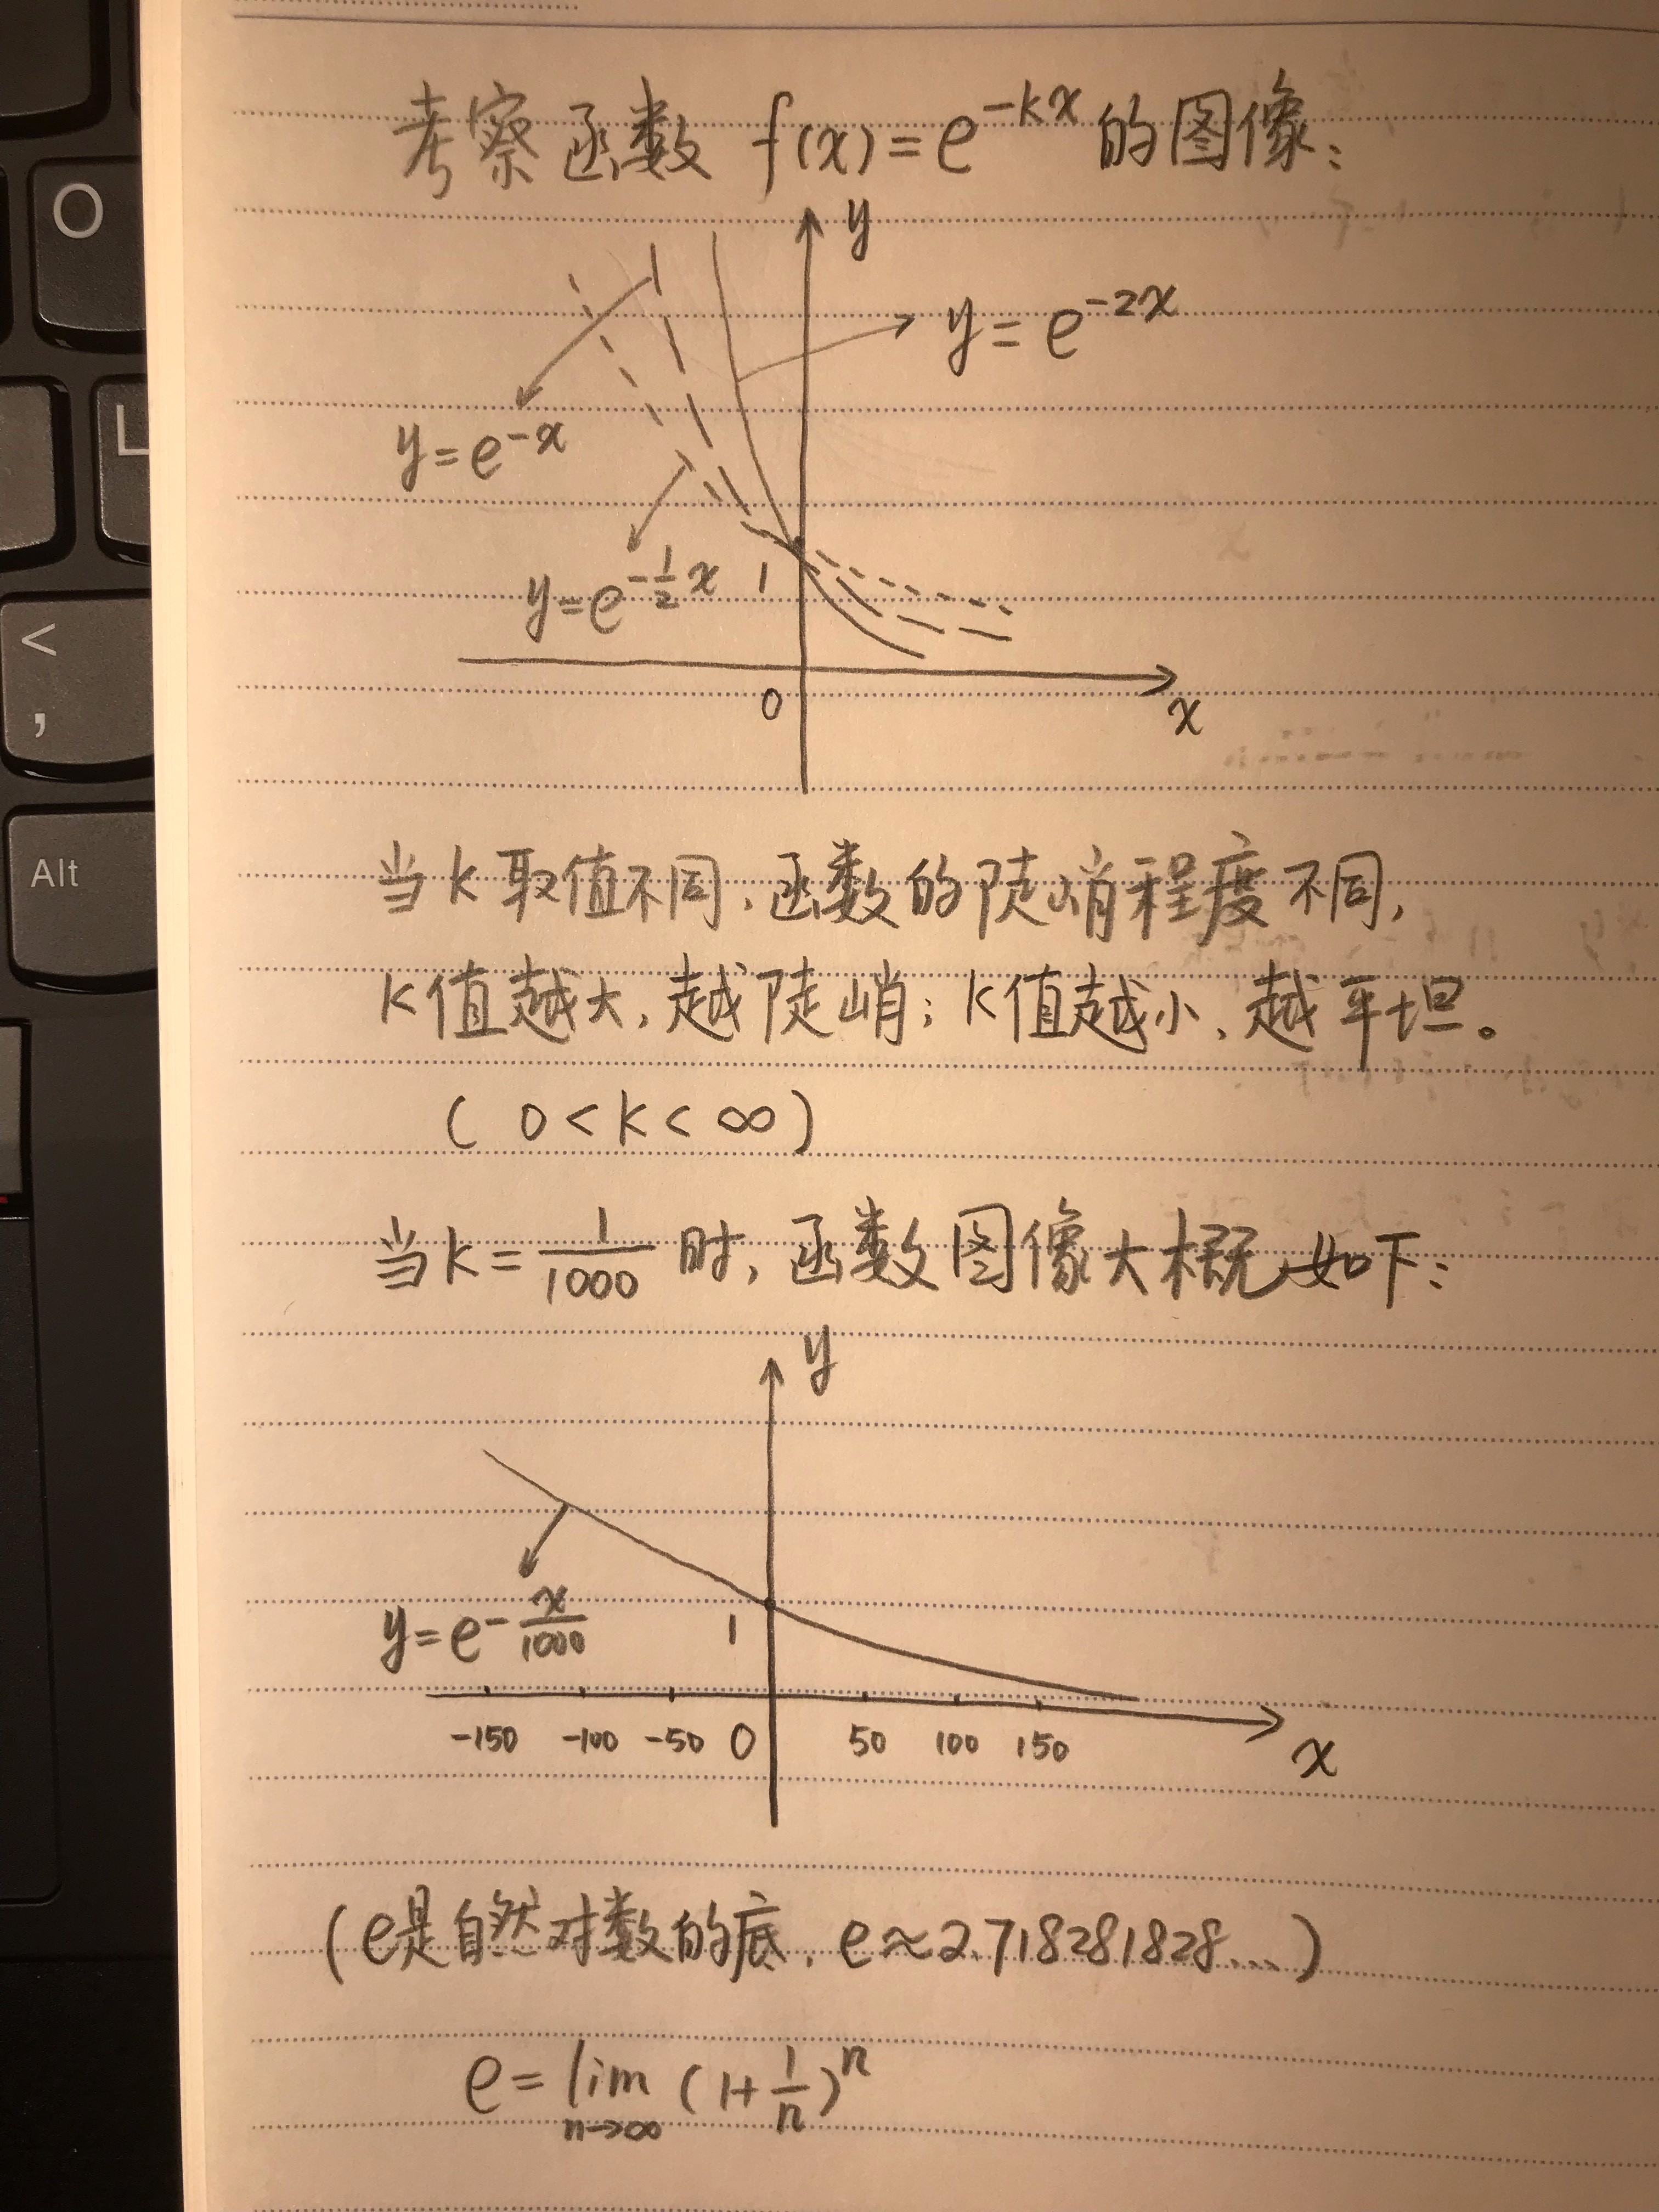 考察函数 f(x)=e^{-kx} 的图像:
y
y=e^{-2x}
y=e^{-x}
y=e^{-\frac{1}{2}x}
1
0
x
当k取值不同,函数的陡峭程度不同,
k值越大,越陡峭;k值越小,越平坦。
( 0<k<∞)
当k=\frac{1}{1000}时,函数图像大概如下:
y
y=e^{-\frac{x}{1000}}
1
-150 -100 -50 0 50 100 150
x
(e是自然对数的底,e≈2.718281828...)
e=\lim_{n→∞}(1+\frac{1}{n})^n
O
L
<
,
Alt